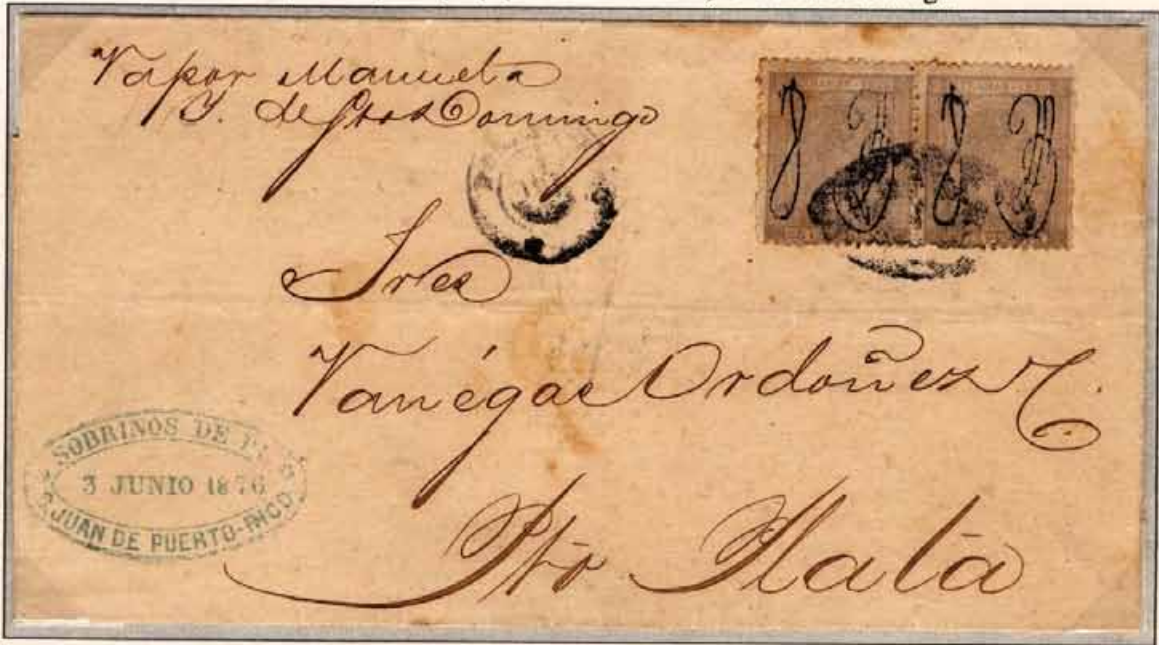 Vapor Manuela
I. de Sto Domingo
Sres
Vanégas Ordoñez C.
Pto Plata
SOBRINOS DE
3 JUNIO 1876
S. JUAN DE PUERTO-RICO